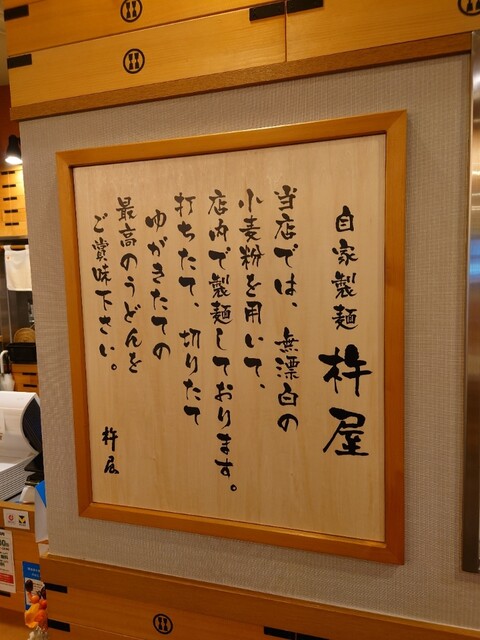 自家製麺 杵屋
当店では、無漂白の
小麦粉を用いて、
店内で製麺しております。
打ちたて、切りたて
ゆがきたての
最高のうどんを
ご賞味下さい。
杵屋